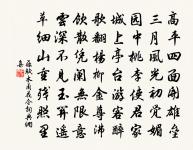 高平四面開雄壘
三月風光初覺媚
園中桃李使君家
城上亭臺游客醉
歌翻楊柳金尊沸
飲散憑闌無限意
雲深不見玉關遙
草細山重殘照裏